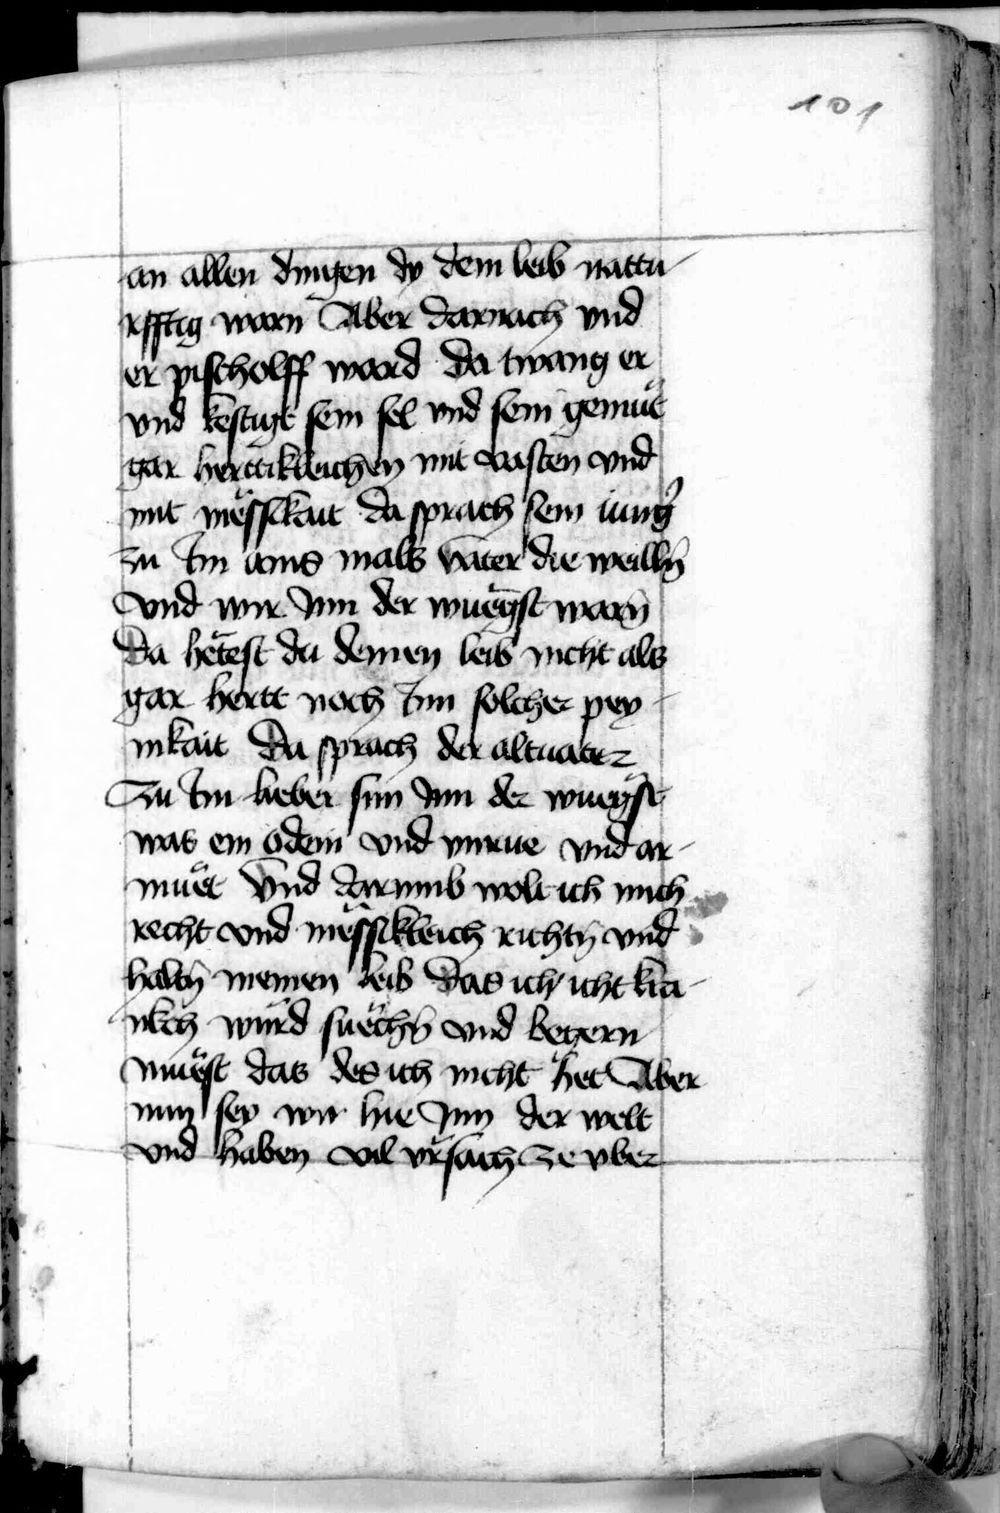 101
an allen dingen dy dem leib nattu-
rfftig warn Aber darnach vnd
er pischolff ward da twang er
vnd kestigt sein sel vnd sein gemuͤt
gar herttikleichen mit vasten vnd
mit mëssikait da sprach sein iungͬ
zu Im ains mals vater die weilln̄
vnd wir Inn der wuëgst warn̄
Da hëtest du deinen leib nicht als
gar hertt noch Inn solcher pey-
nikait Da sprach der altuater
Zu Im lieber sun Inn der wuëgst
was ein ödein vnd vnrue vnd ar-
muët Vnd darumb wolt ich mich
recht vnd mëssikleich richtn̄ vnd
habn̄ meinen leib das ich icht kra-
nkch würd suëchn̄ vnd begern
muëst das des ich nicht het Aber
nun sey wir hie Inn der welt
vnd haben vil vrsach ze vber